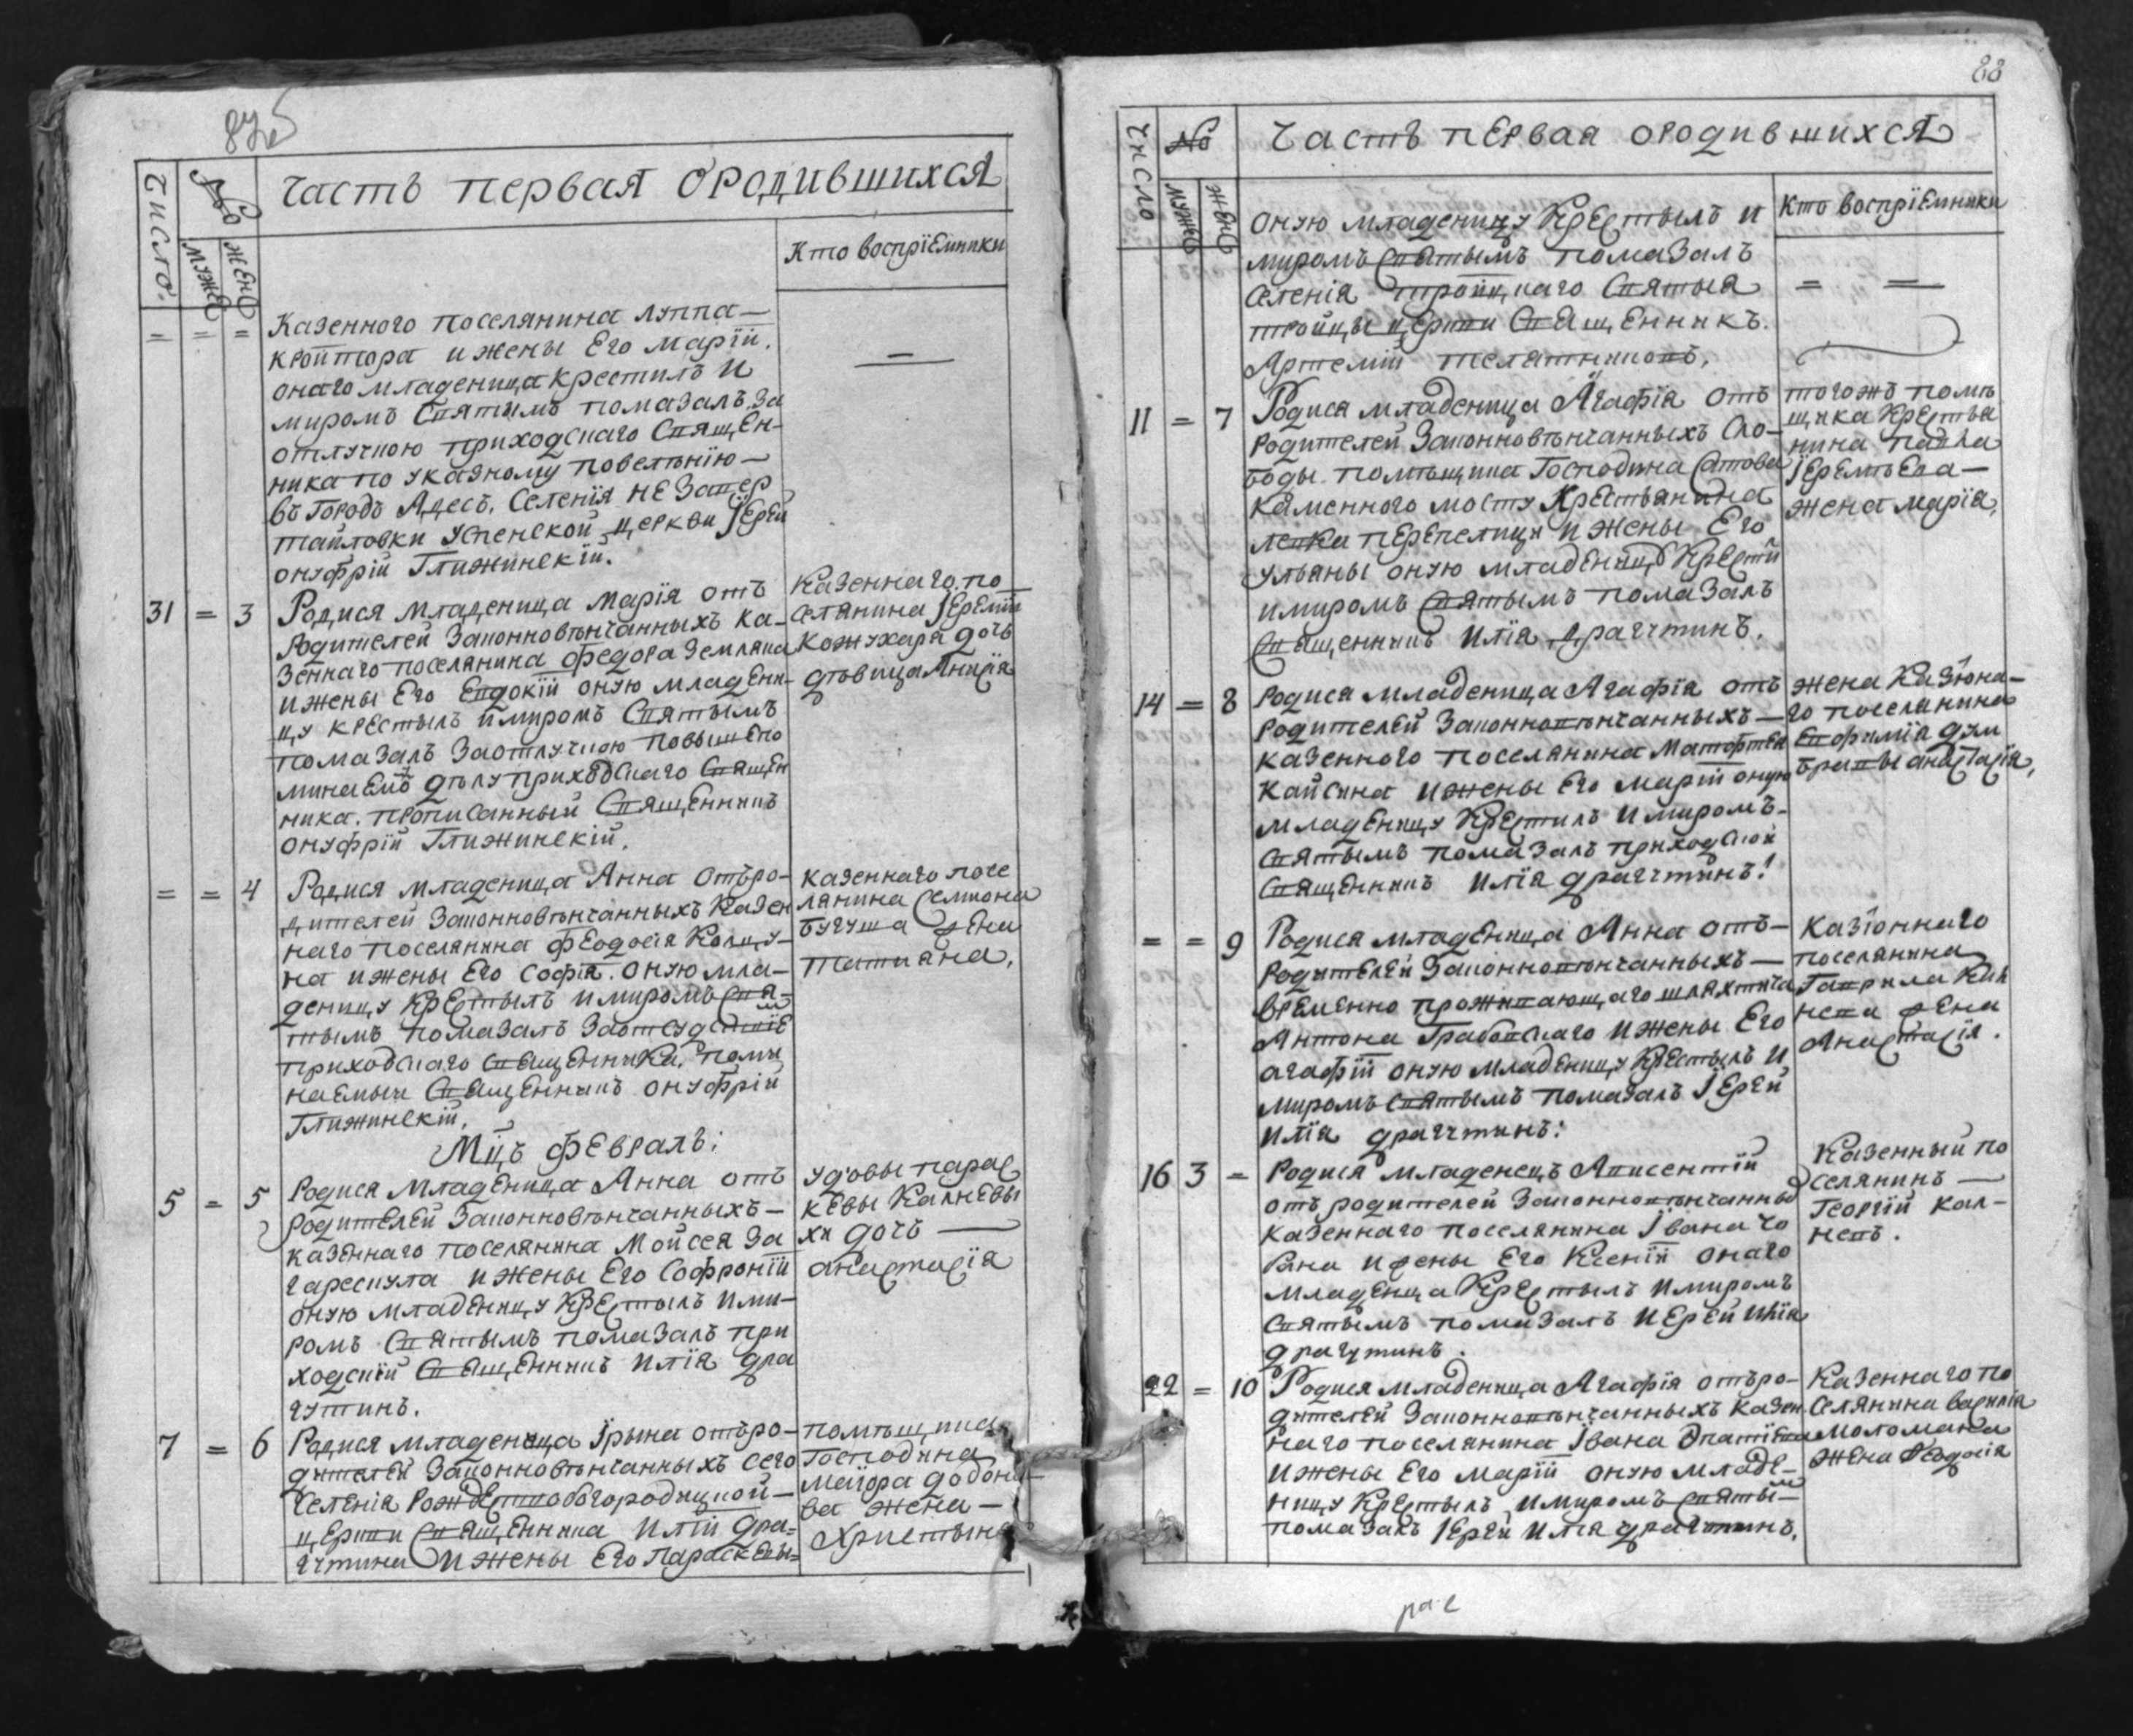 Число.
№
мужес
женс
Часть первая ородившихся
Кто воспрiемники
= = =
Казенного поселянина луппа—
кройтора и жены Его Марiи.
онаго младенца крестилъ и
миромъ Святымъ помазалъ, за
отлучкою приходскаго Священ-
ника по указному повелѣнiю—
въ Городъ Адесъ. Селенiя
тайловки Успенской церкви Iерей
онуфрiй Глижинскiй.
31 = 3
Родися младеница Марiя отъ
Родителей Законновѣнчанныхъ Ка-
зеннаго поселянина Федора Земляка
и жены Его Евдокiи оную младени-
цу крестылъ и миромъ Святымъ
помазалъ Заотлучкою повышепо
минаемо дѣлу приходскаго Священ
ника. прописанный Священникъ
онуфрiй Глижинскiй.
Казеннаго по
селянина Iеремiи
Кожухаря дочь
дѣвица Анисiя
= = 4
Родися младеница Анна Отъро-
дителей Законновѣнчанныхъ Казен
наго поселянина Феодосiя
на и жены Его Софiя. оную мла-
деницу Крестылъ и миромъ Свя-
тымъ помазалъ Заотсудствiе
приходскаго Священника, поми
наемый Священникъ онуфрiй
Глижинскiй.
казеннаго посе
лянина Семиона
Бугуша жена
Татиана.
Мцъ февраль:
5 = 5
Родися Младеница Анна отъ
родителей Законновѣнчанныхъ—
казеннаго поселянина Мойсея За
гарескула и жены Его Софронiи
оную младеницу Крестылъ и ми-
ромъ Святымъ помазалъ при
ходскiй Священникъ Илiя дра
гутинъ.
удовы парас
кевы Калневы
хи дочь —
анастасiя
7 = 6
Родися младеница Iрына отъро-
дителей Законновѣнчанныхъ Сего
Селенiя Рождествобогородицной—
церкви Священника Илiи дра=
гутина и жены Его Параскевы=
помѣщика
Господина
маiора додоно
ва жена —
Христына
88
Число
№
мужес
женс
Часть первая ородившихся
Кто воспрiемники
оную младеницу Крестылъ и
миромъ Святымъ помазалъ
Селенiя тройцкаго Святыя
тройцы церкви Священникъ.
Артемiй телятниковъ.
= =
11 = 7
Родися младеница Агафiя отъ
родителей Законновѣнчанныхъ Сло-
боды помѣщика Господина Сатова
каменного мосту Крестьянина
левка перепелици и жены Его
ульяны оную младеницу Крести
и миромъ Святымъ помазалъ
Священникъ Илiя драгутинъ.
тогожъ помѣ
щика Крестья
нина павла
Iеремѣева—
жена Марiя.
14 = 8
родися младеница Агафiя отъ
родителей Законновѣнчанныхъ—
казенного поселянина Матфтея
Кайсина и жены Его Марiи оную
младеницу Крестилъ и миромъ-
Святымъ помазалъ приходской
Священникъ Илiя драгутинъ!
жена Казiона-
го поселянина
Евфимiя дум
бравы анастасiя,
= = 9
Родися младеница Анна отъ—
родителей Законновѣнчанныхъ—
временно проживающаго шляхтича
Антона Грабовскаго и жены Его
агафiи оную младеницу Крестылъ и
миромъ Святымъ помазалъ Iерей
Илiя драгутинъ:
Казiоннаго
поселянина
Гаврила Кал
нева жена
Анастасiя.
16 3 =
Родися младенецъ Авксентiй
отъ родителей Законновѣнчанны
казеннаго поселянина Iвана Чо
бана и жены Его Ксенiи онаго
младенца Крестылъ и миромъ
Святымъ помазалъ Иерей Илiя
драгутинъ.
Казенный по
селянинъ —
Георгiй Кал-
невъ.
22 = 10
Родися младеница Агафiя отъро-
дителей Законновѣнчанныхъ Казен
наго поселянина Iвана
и жены Его Марiи оную младе-
ницу Крестылъ и миромъ Святы-
помазалъ Iерей Илiя драгутинъ.
Казеннаго по
селянина василiя
Моломана
жена Феодосiя